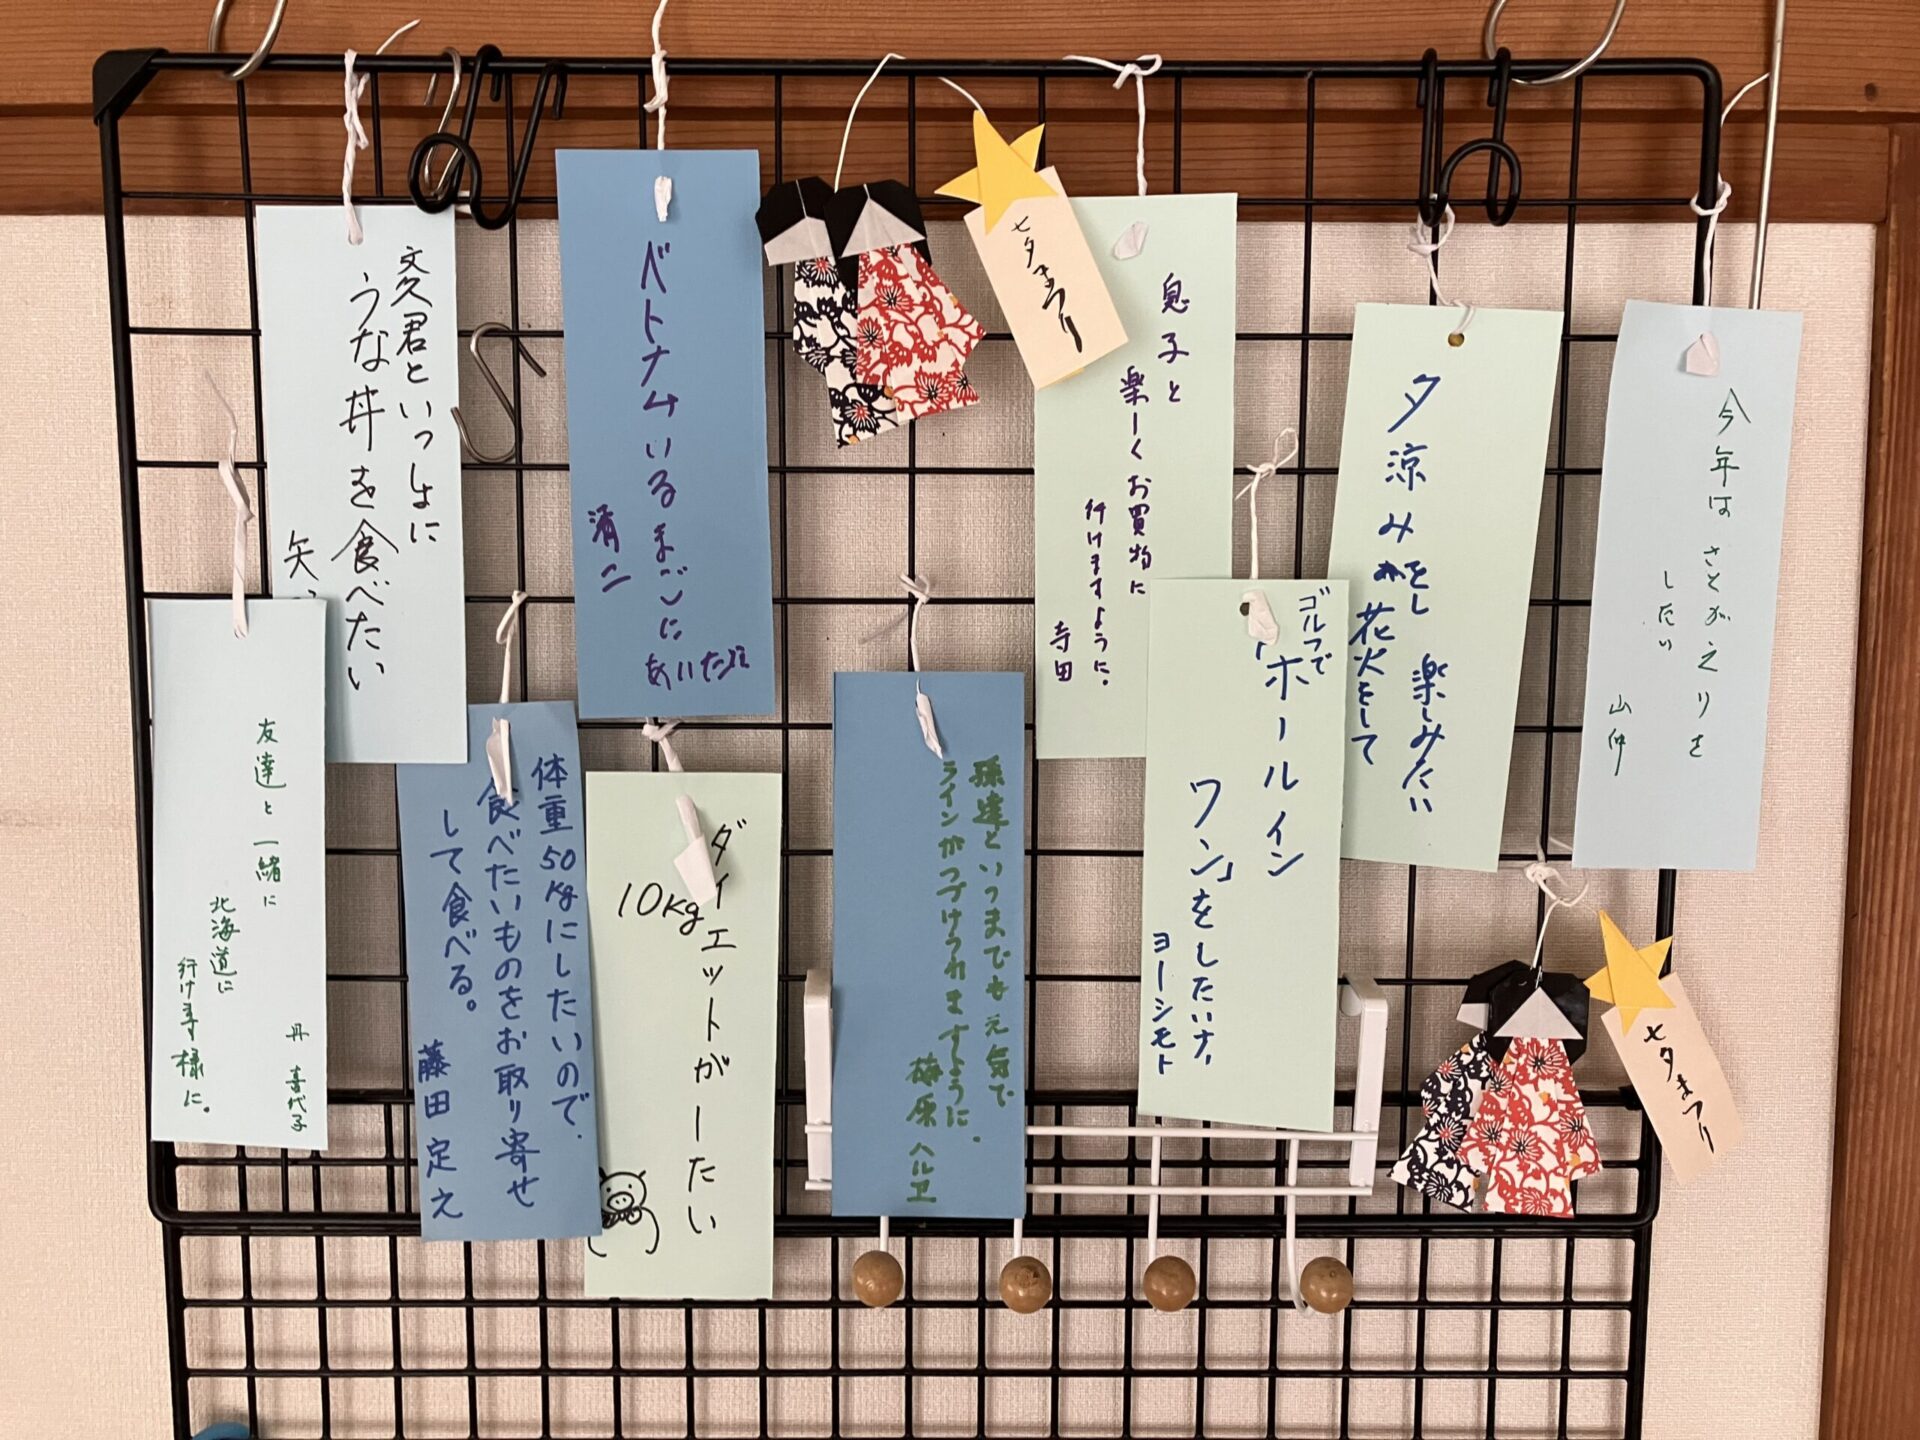 文久君といっしょに
うな丼を食べたい
矢
ベトナムいるまごに
あいたい
清二
七夕まつり
息子と
楽しくお買物に
行けますように。
寺田
夕涼みをし
花火をして
楽しみたい
今年は
さとがえりを
したい
山仲
友達と一緒に
北海道に
行けます様に。
丹 喜代子
体重50kgにしたいので、
食べたいものをお取り寄せ
して食べる。
藤田定之
ダイエットがーたい
10kg
孫達といつまでも元気で
ラインがつづけられますように。
梅原ハルヱ
ゴルフで
「ホールイン
ワン」をしたいナ、
ヨーシモト
七夕まつり